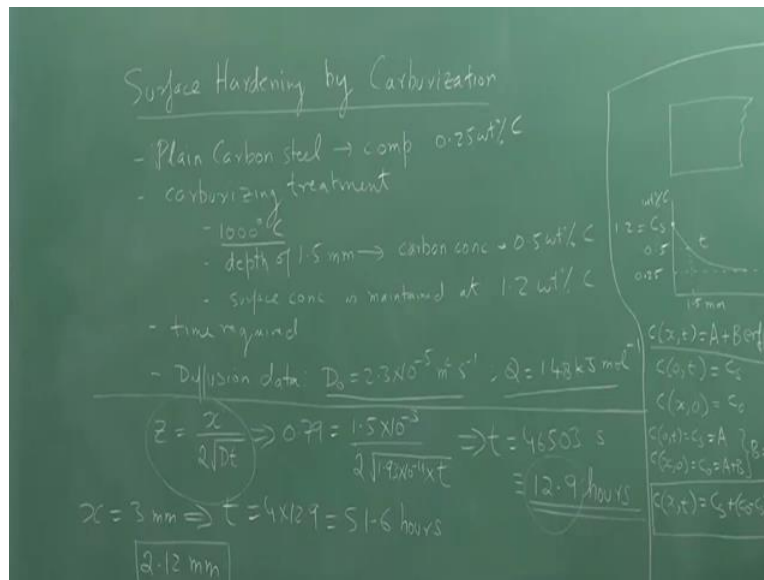 Surface Hardening by Carburization
- Plain Carbon steel → comp 0.25 wt% C
- carburizing treatment
- 1000°C
- depth of 1.5 mm → carbon conc = 0.5 wt% C
- surface conc is maintained at 1.2 wt% C
- time required
- Diffusion data: D₀ = 2.3×10⁻⁵ m² s⁻¹, Q = 148 kJ mol⁻¹
z = x / 2√Dt ⇒ 0.79 = 1.5×10⁻³ / 2√1.93×10⁻¹¹×t ⇒ t = 46503 s
= 12.9 hours
x = 3 mm ⇒ t = 4×12.9 = 51.6 hours
2.12 mm
wt% C
1.2 = Cs
0.5
t
0.25
1.5 mm
C(x,t) = A + B erf
C(0,t) = Cs
C(x,0) = C₀
C(0,t) = Cs = A
C(x,0) = C₀ = A+B } B =
C(x,t) = Cs + (C₀ - Cs